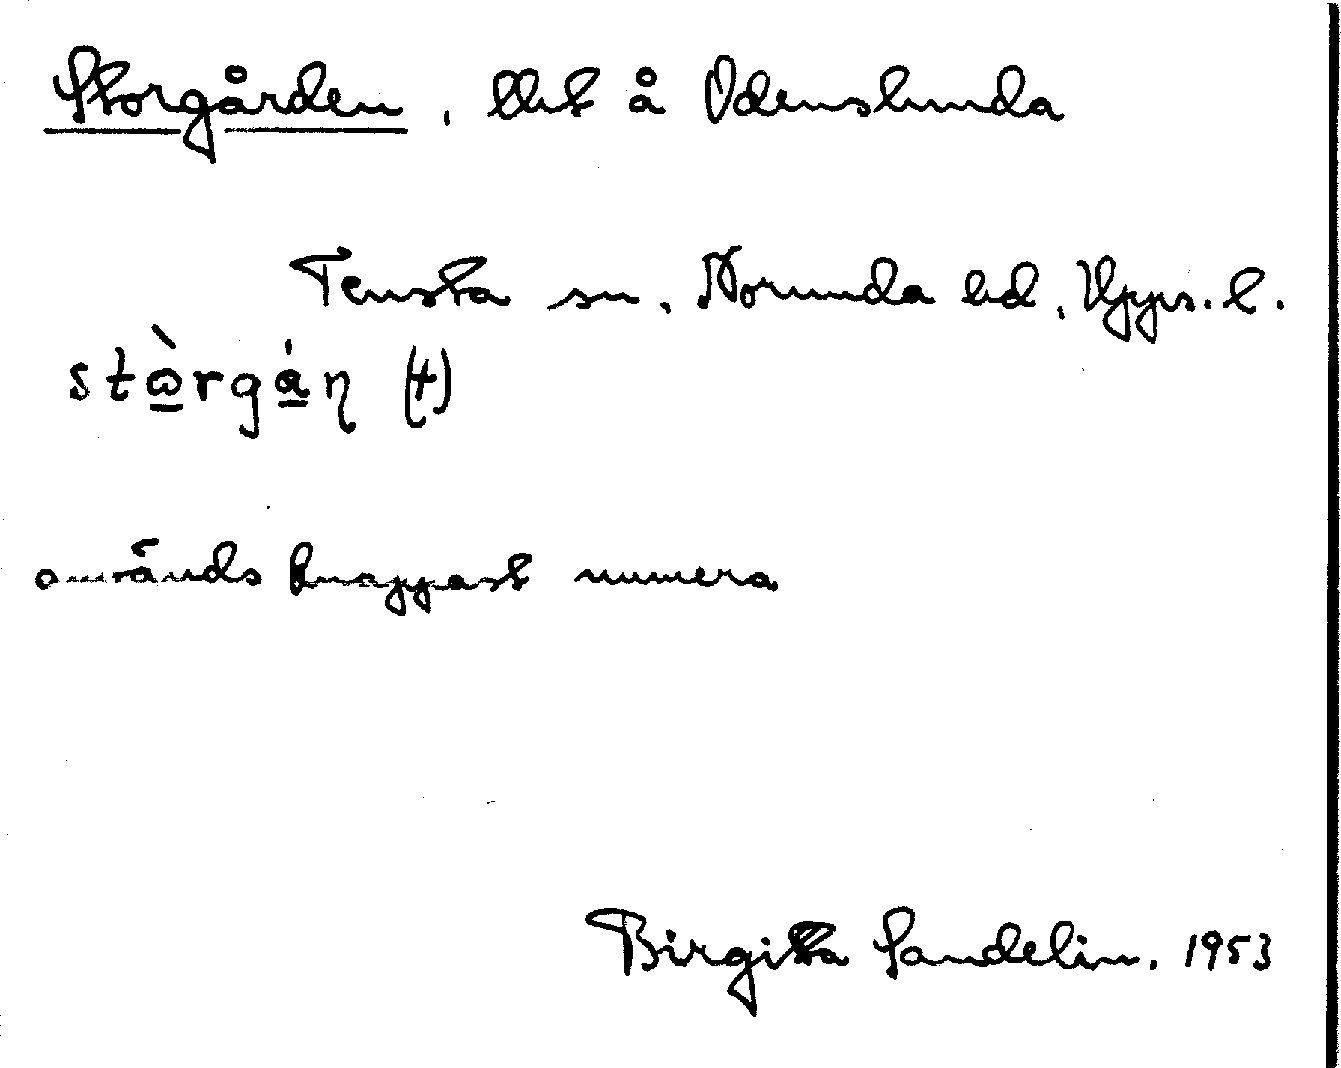 Storgården, llht å Odenslunda
Tensta sn, Norunda hd, Upps. l.
stò̱rgá̱ɳ (+)
används knappast numera
Birgitta Sandelin. 1953